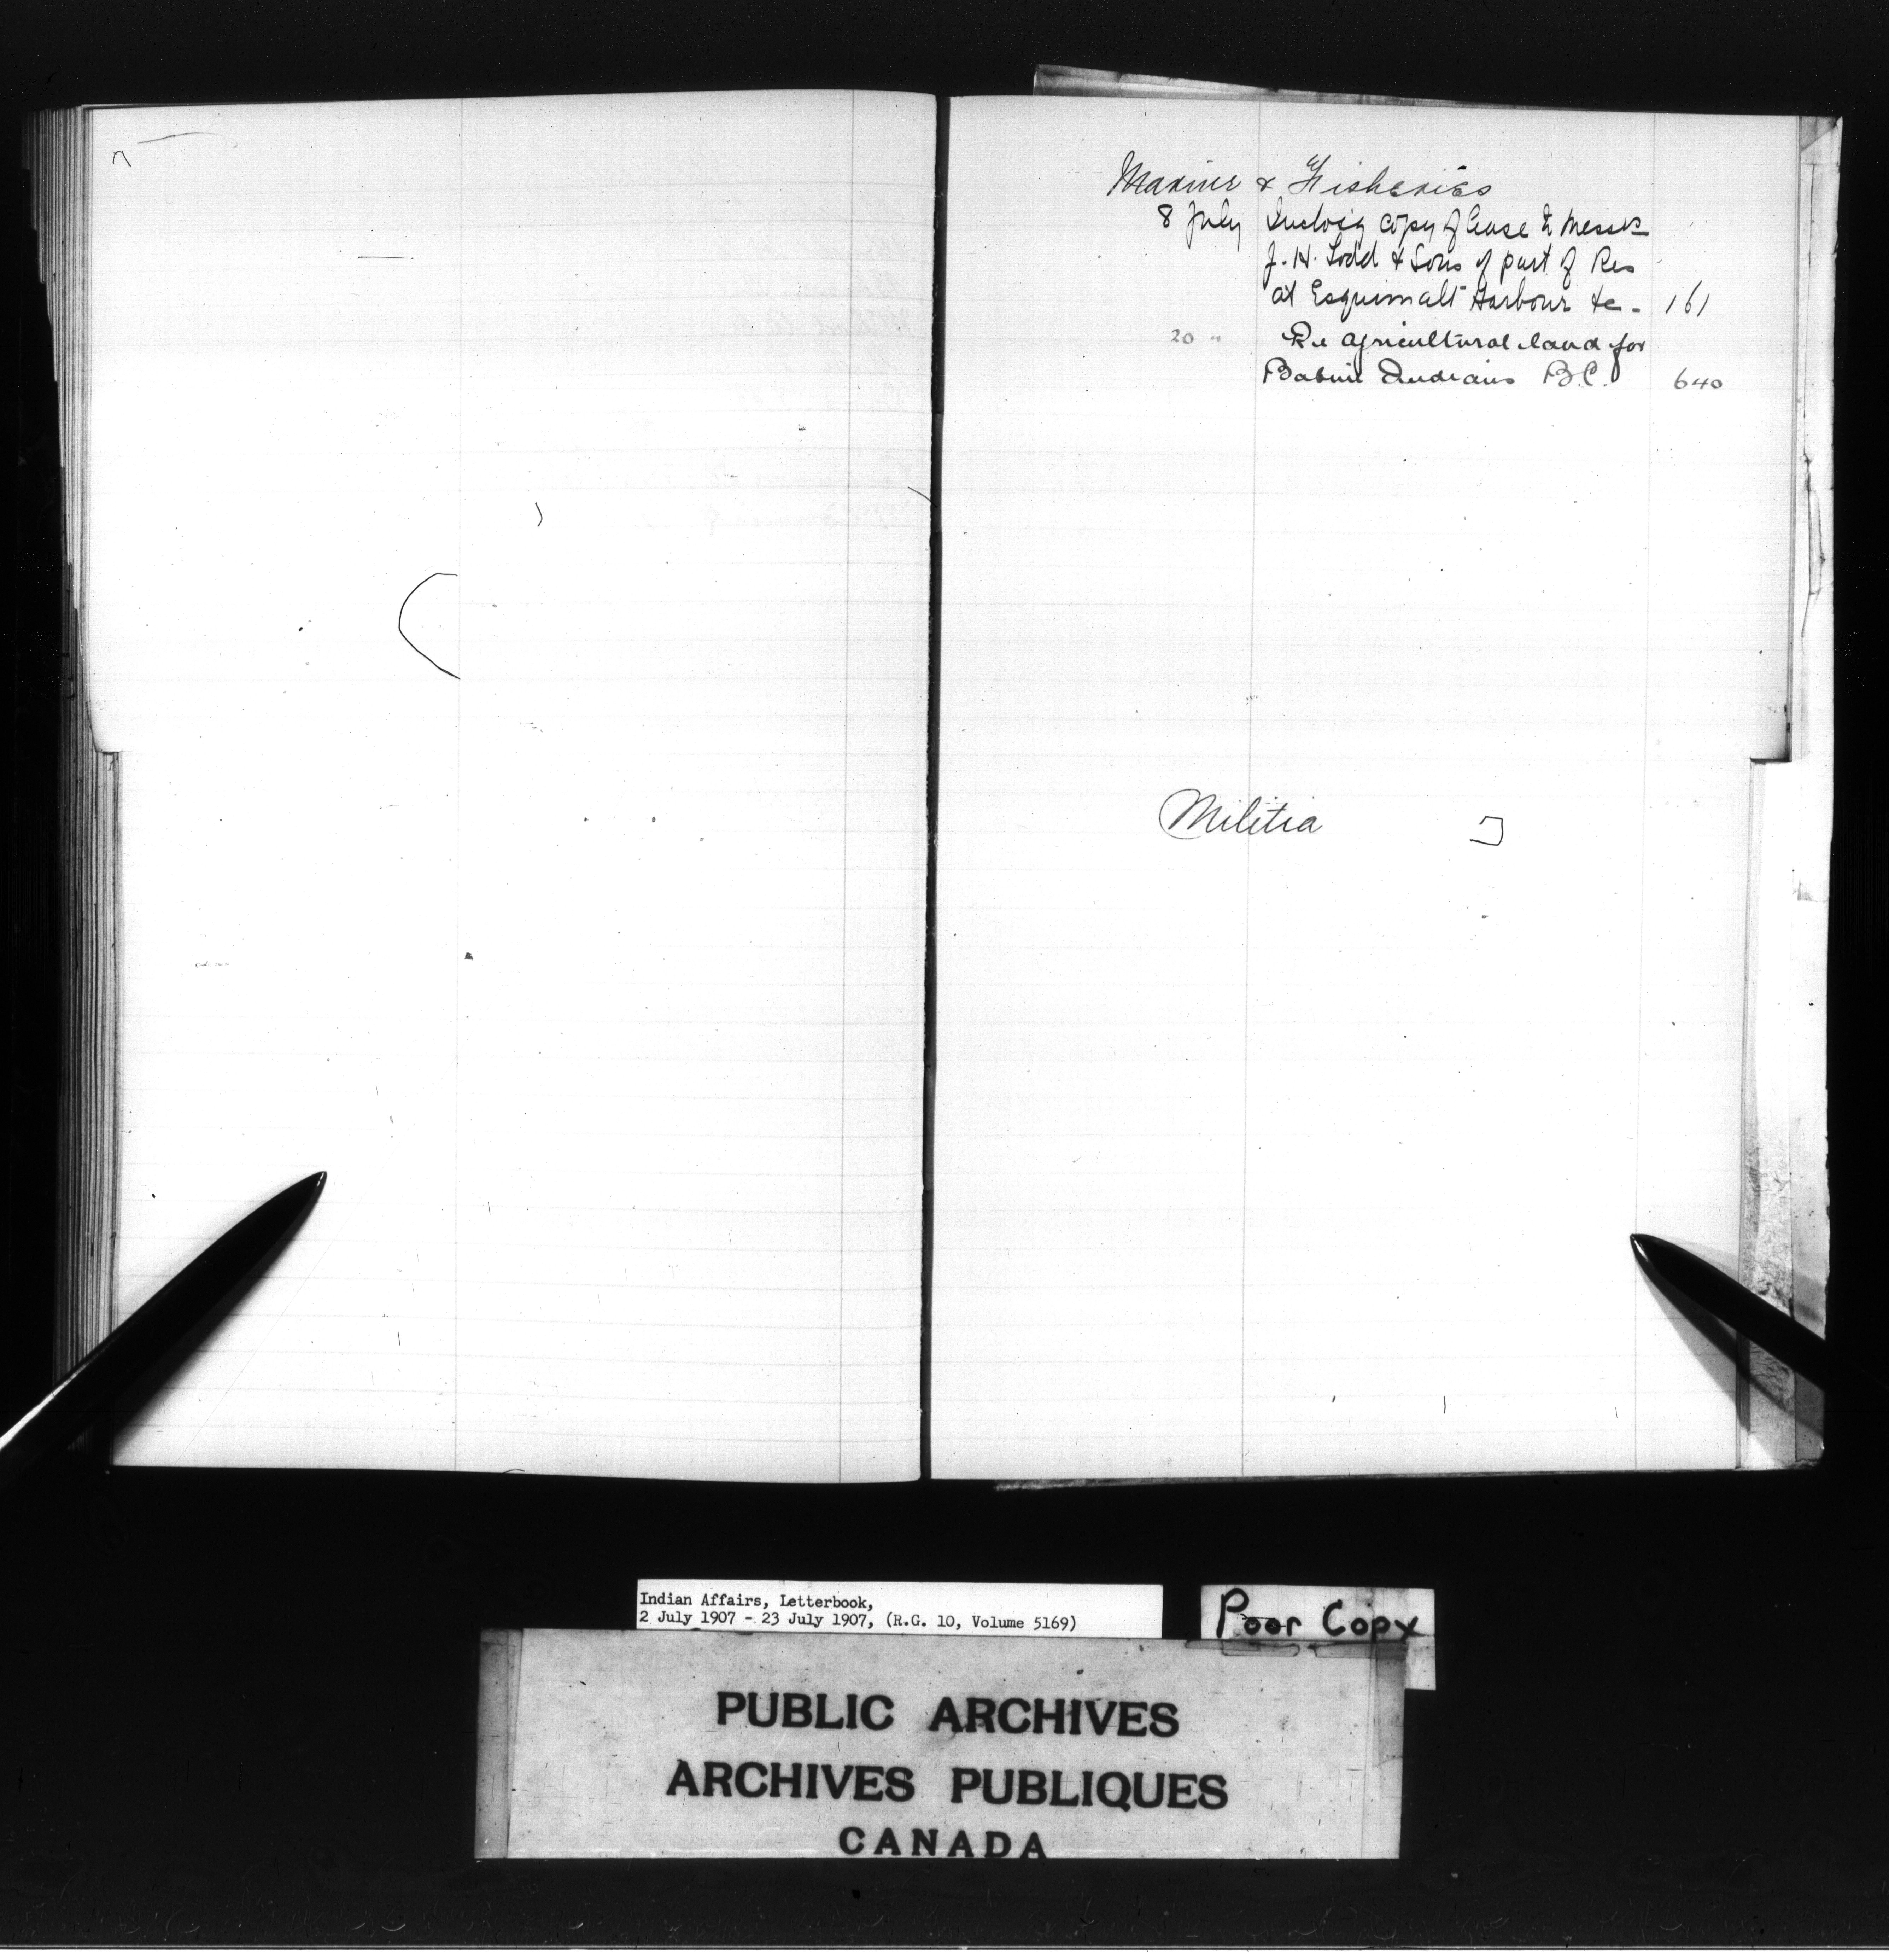 Marine & Fisheries
8 July Inclosig copy of lease to Messrs
J. H. Todd & Sons of part of Res
at Esquimalt Harbour &c - 161
20 " Re agricultural land for
Babine Indians B.C. 640
Militia
Indian Affairs, Letterbook,
2 July 1907 - 23 July 1907, (R.G. 10, Volume 5169)
Poor Copy
PUBLIC ARCHIVES
ARCHIVES PUBLIQUES
CANADA